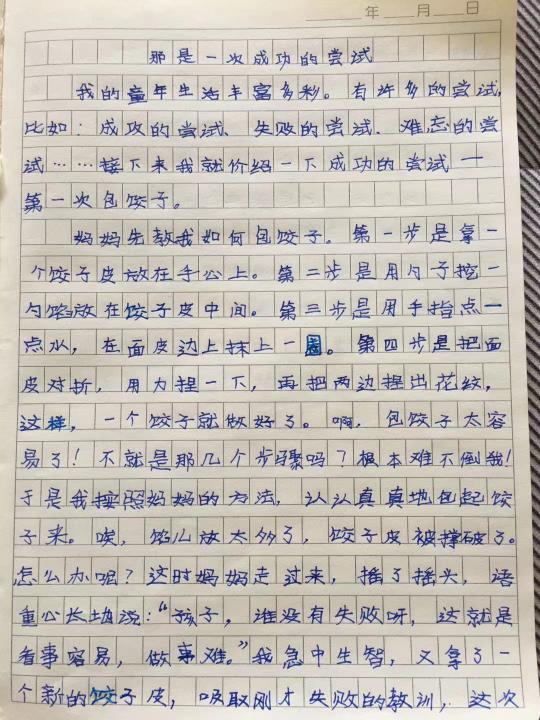 年 月 日
那是一次成功的尝试
我的童年生活丰富多彩。有许多的尝试,
比如:成攻的尝试、失败的尝试、难忘的尝
试……接下来我就价绍一下成功的尝试一
第一次包饺子。
妈妈先教我如何包饺子。第一步是拿一
个饺子皮放在手心上。第二步是用勺子挖一
勺馅放在饺子皮中间。第三步是用手指点一
点水,在面皮边上抹上一圈。第四步是把面
皮对折,用力捏一下,再把两边捏出花纹,
这样,一个饺子就做好了。啊,包饺子太容
易了!不就是那几个步骤吗?根本难不倒我!
于是我按照妈妈的方法,认认真真地包起饺
子来。唉,馅儿放太多了,饺子皮被撑破了。
怎么办呢?这时妈妈走过来,摇了摇头,语
重心长地说:“孩子,谁没有失败呀,这就是
看事容易,做事难。”我急中生智,又拿了一
个新的饺子皮,吸取刚才失败的教训,这次